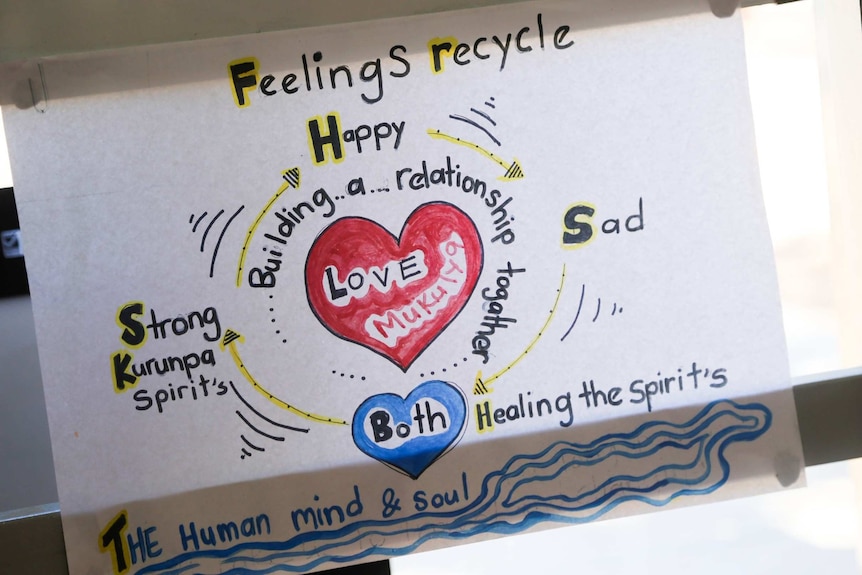 Feelings recycle
Happy
Building..a... relationship togather
Sad
LOVE
Mukulya
Strong
Kurunpa
Spirit's
Both
Healing the Spirit's
THE Human mind & soul